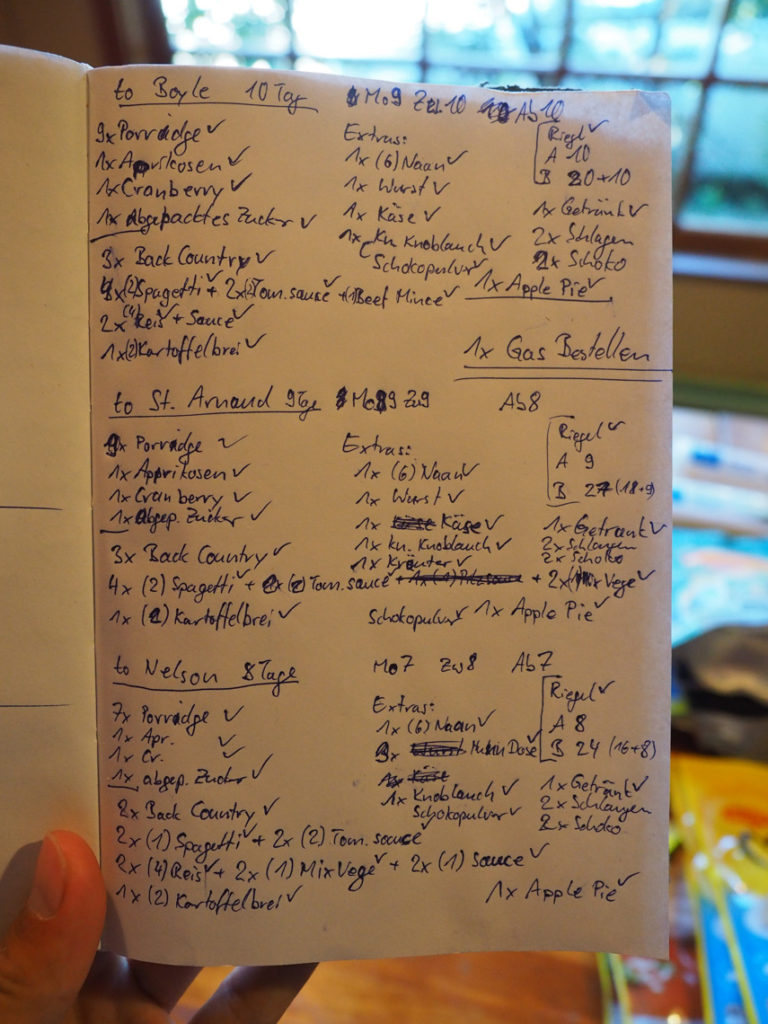 to Boyle 10 Tag Mo9 Zw10 Ab10
9x Porridge ✓
1x Aprikosen ✓
1x Cranberry ✓
1x Abgepacktes Zucker ✓
3x Back Country ✓
(2) Spagetti ✓ + 2x (2) Tom. sauce ✓ + (1) Beef Mince ✓
2x (4) Reis ✓ + Sauce ✓
1x (2) Kartoffelbrei ✓
Extras:
1x (6) Naan ✓
1x Wurst ✓
1x Käse ✓
1x Kn. Knoblauch ✓
Schokopulver ✓
Riegel ✓
A 10
B 20+10
1x Getränk ✓
2x Schlagen
2x Schoko
1x Apple Pie ✓
1x Gas Bestellen
to St. Arnaud 9 Tage Mo9 Zw9 Ab8
9x Porridge ✓
1x Apprikosen ✓
1x Cranberry ✓
1x Abgep. Zucker ✓
3x Back Country ✓
4x (2) Spagetti ✓ + (2) Tom. sauce ✓ + 2x Mix Vege ✓
1x (2) Kartoffelbrei ✓
Extras:
1x (6) Naan ✓
1x Wurst ✓
1x Käse ✓
1x kn. Knoblauch ✓
1x Kräuter ✓
Schokopulver ✓
Riegel ✓
A 9
B 27 (18+9)
1x Getränk ✓
2x Schlangen
2x Schoko
1x Apple Pie ✓
to Nelson 8 Tage Mo7 Zw8 Ab7
7x Porridge ✓
1x Apr. ✓
1x Cr. ✓
1x abgep. Zucker ✓
2x Back Country ✓
2x (1) Spagetti ✓ + 2x (2) Tom. sauce ✓
2x (4) Reis ✓ + 2x (1) Mix Vege ✓ + 2x (1) Sauce ✓
1x (2) Kartoffelbrei ✓
Extras:
1x (6) Naan ✓
Dose ✓
1x Knoblauch ✓
Schokopulver ✓
Riegel ✓
A 8
B 24 (16+8)
1x Getränk ✓
2x Schlangen
2x Schoko
1x Apple Pie ✓